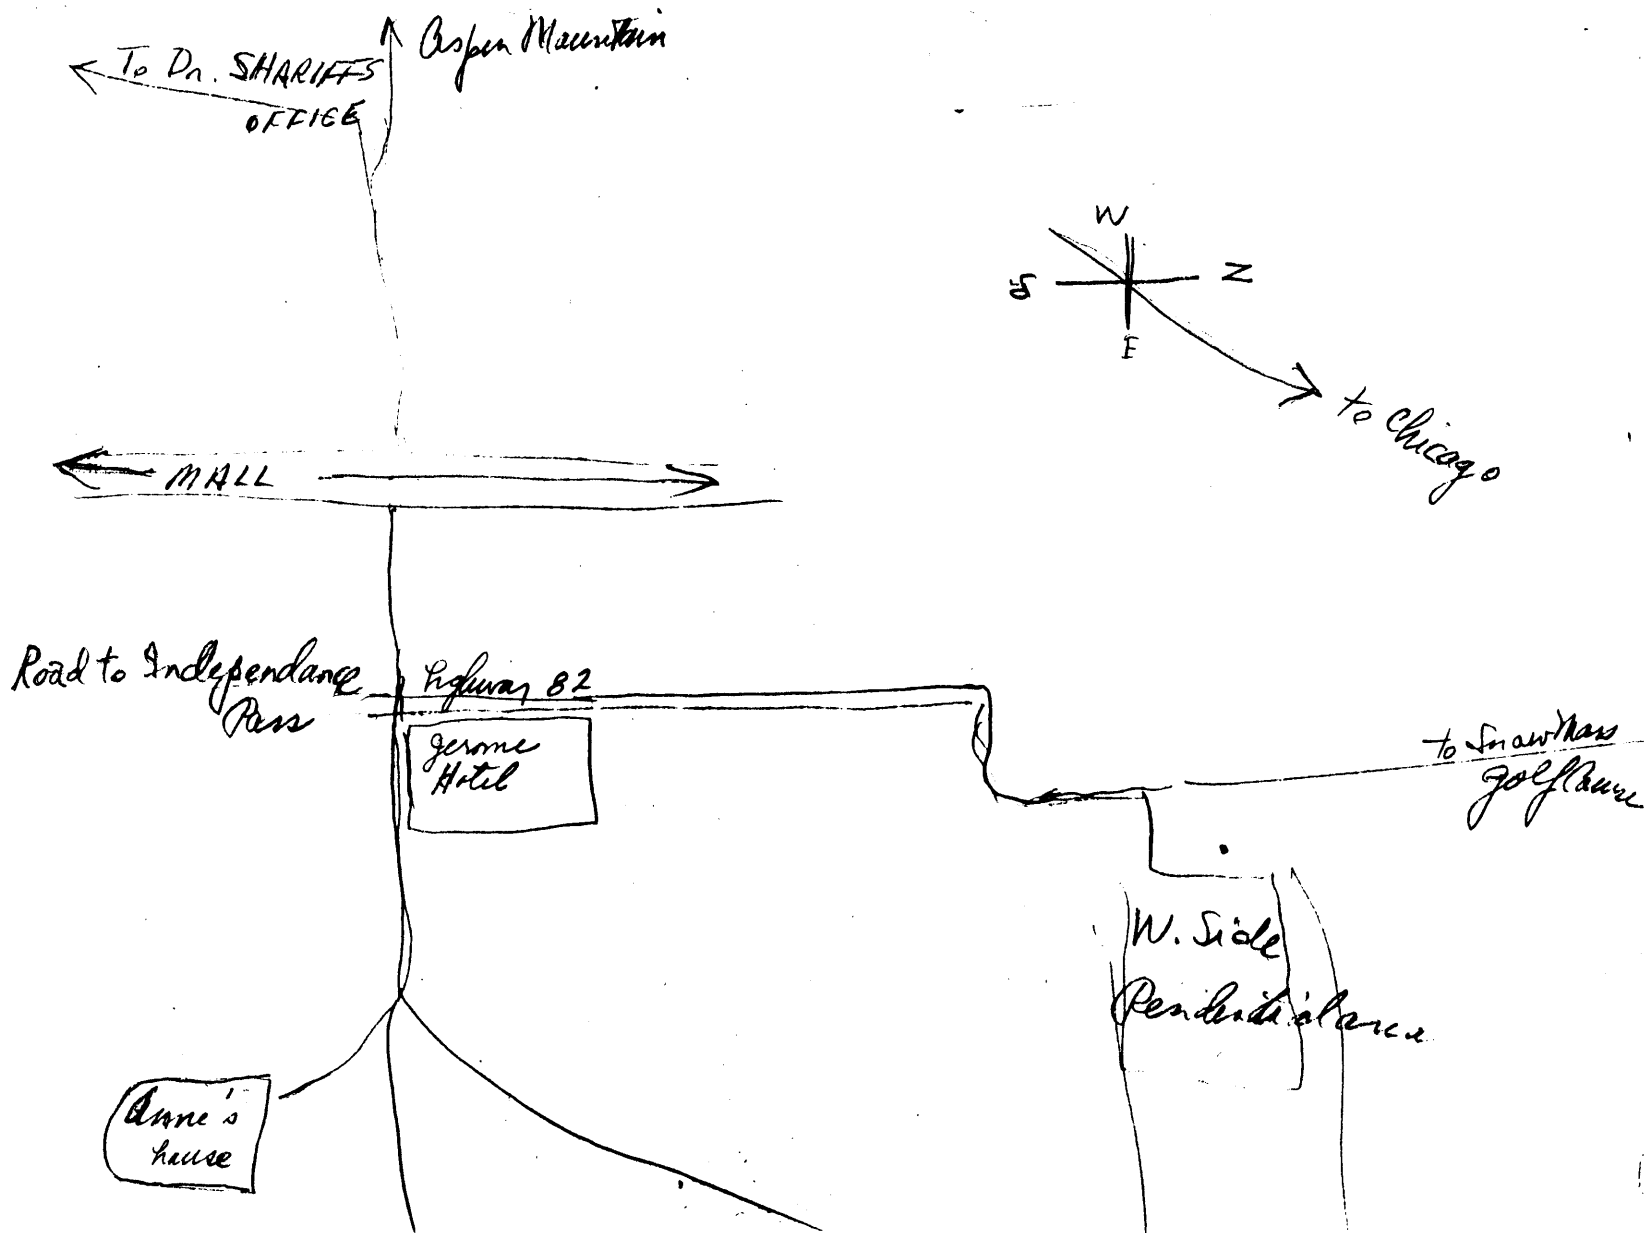 Aspen Mountain
To Dr. SHARIFFS
OFFICE
W
S
N
E
to Chicago
MALL
Road to Independance
Pass
highway 82
Jerome
Hotel
to Snowmass
golf Course
W. Side
Residential area
Anne's
house